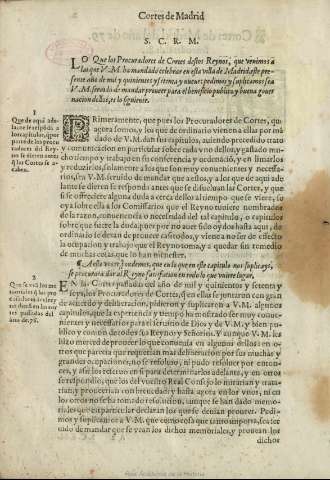 Cortes de Madrid
S. C. R. M.
LO Que los Procuradores de Cortes destos Reynos, que venimos a
las que V. M. ha mandado celebrar en esta villa de Madrid, este pre-
sente año de mil y quinientos y setenta y nueue: pedimos y suplicamos sea
V. M. seruido de mandar proueer para el beneficio publico y buena gouer
nacion dellos, es lo siguiente.
1
Que de aqui ade-
lante se respõda a
los capitulos, que
por parte de los procu
radores del Rey-
no se dieren antes
q̃ las Cortes se a-
caben.
PRimeramente, que pues los Procuradores de Cortes, que
agora somos, y los que de ordinario vienen a ellas por mã
dado de V. M. dan sus capitulos, auiendo precedido trato
y comunicacion en particular sobre cada vno dellos, y gastado mu-
cho tiempo y trabajo en su conferencia y ordenació, y en limarlos
y reduzirlos, solamente a los que son muy conuenientes y neces-
sarios, sea V. M. seruido de mandar que a estos, y a los que de aqui ade-
lante se dieren se responda antes que se dissueluan las Cortes, y que
si se ofreciere alguna duda a cerca dellos al tiempo que se vieren, se
oya sobre ella a los Comissarios que el Reyno tuuiere nombrados
de la razon, conueniencia o necessidad del tal capitulo, o capitulos
sobre que fuere la duda, pues por no auer sido oydos hasta aqui, de
ordinario se dexan de proueer casi todos, y viene a no ser de efecto
la ocupacion y trabajo que el Reyno toma, y a quedar sin remedio
de muchas cosas, que lo han menester.
¶ A esto vos respondemos, que en lo que en este capitulo nos suplicays,
se procurara dar al Reyno satisfacion en todo lo que vuiere lugar.
2
Que se veã los me
moriales, q̃ los pro
curadores de cortes
dieron en las cor
tes passadas del
año de 76.
EN las Cortes passadas del año de mil y quinientos y setenta y
seys, los Procuradores de Cortes, q̃ en ellas se juntaron con gran-
de acuerdo y deliberacion, pidieron y suplicaron a V. M. algunos
capitulos, que la experiencia y tiempo ha mostrado ser muy conue-
nientes y necessarios para el seruicio de Dios y de V. M. y bien pu-
blico y comun de todos sus Reynos y Señorios. Y aunque V. M. les
hizo merced de proueer lo que conuenia en algunos dellos: en o-
tros que parecia que requerian mas deliberacion por sus muchas y
grandes ocupaciones, no se resoluio, ni pudo resoluer por enton-
ces, y assi los reseruo en si para determinarlos adelante, y en otros
se respondio, que los del vuestro Real Consejo lo mirarian y trata-
rian, y proueerian con breuedad: y hasta agora en los vnos, ni en
los otros no se ha tomado resolucion, aunque se han dado memo-
riales que en particular declaran los que se deuian proueer. Pedi-
mos y suplicamos a V. M. que como cosa que tanto importa, sea ser
uido de mandar que se vean los dichos memoriales, y prouean los
A
dichos
Real Academia de la Historia